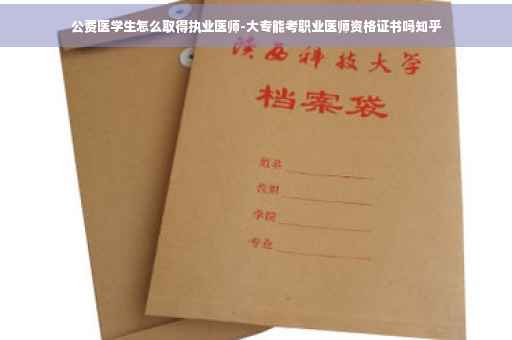 公费医学生怎么取得执业医师-大专能考职业医师资格证书吗知乎
陕西科技大学
档案袋
姓名
学院
专业